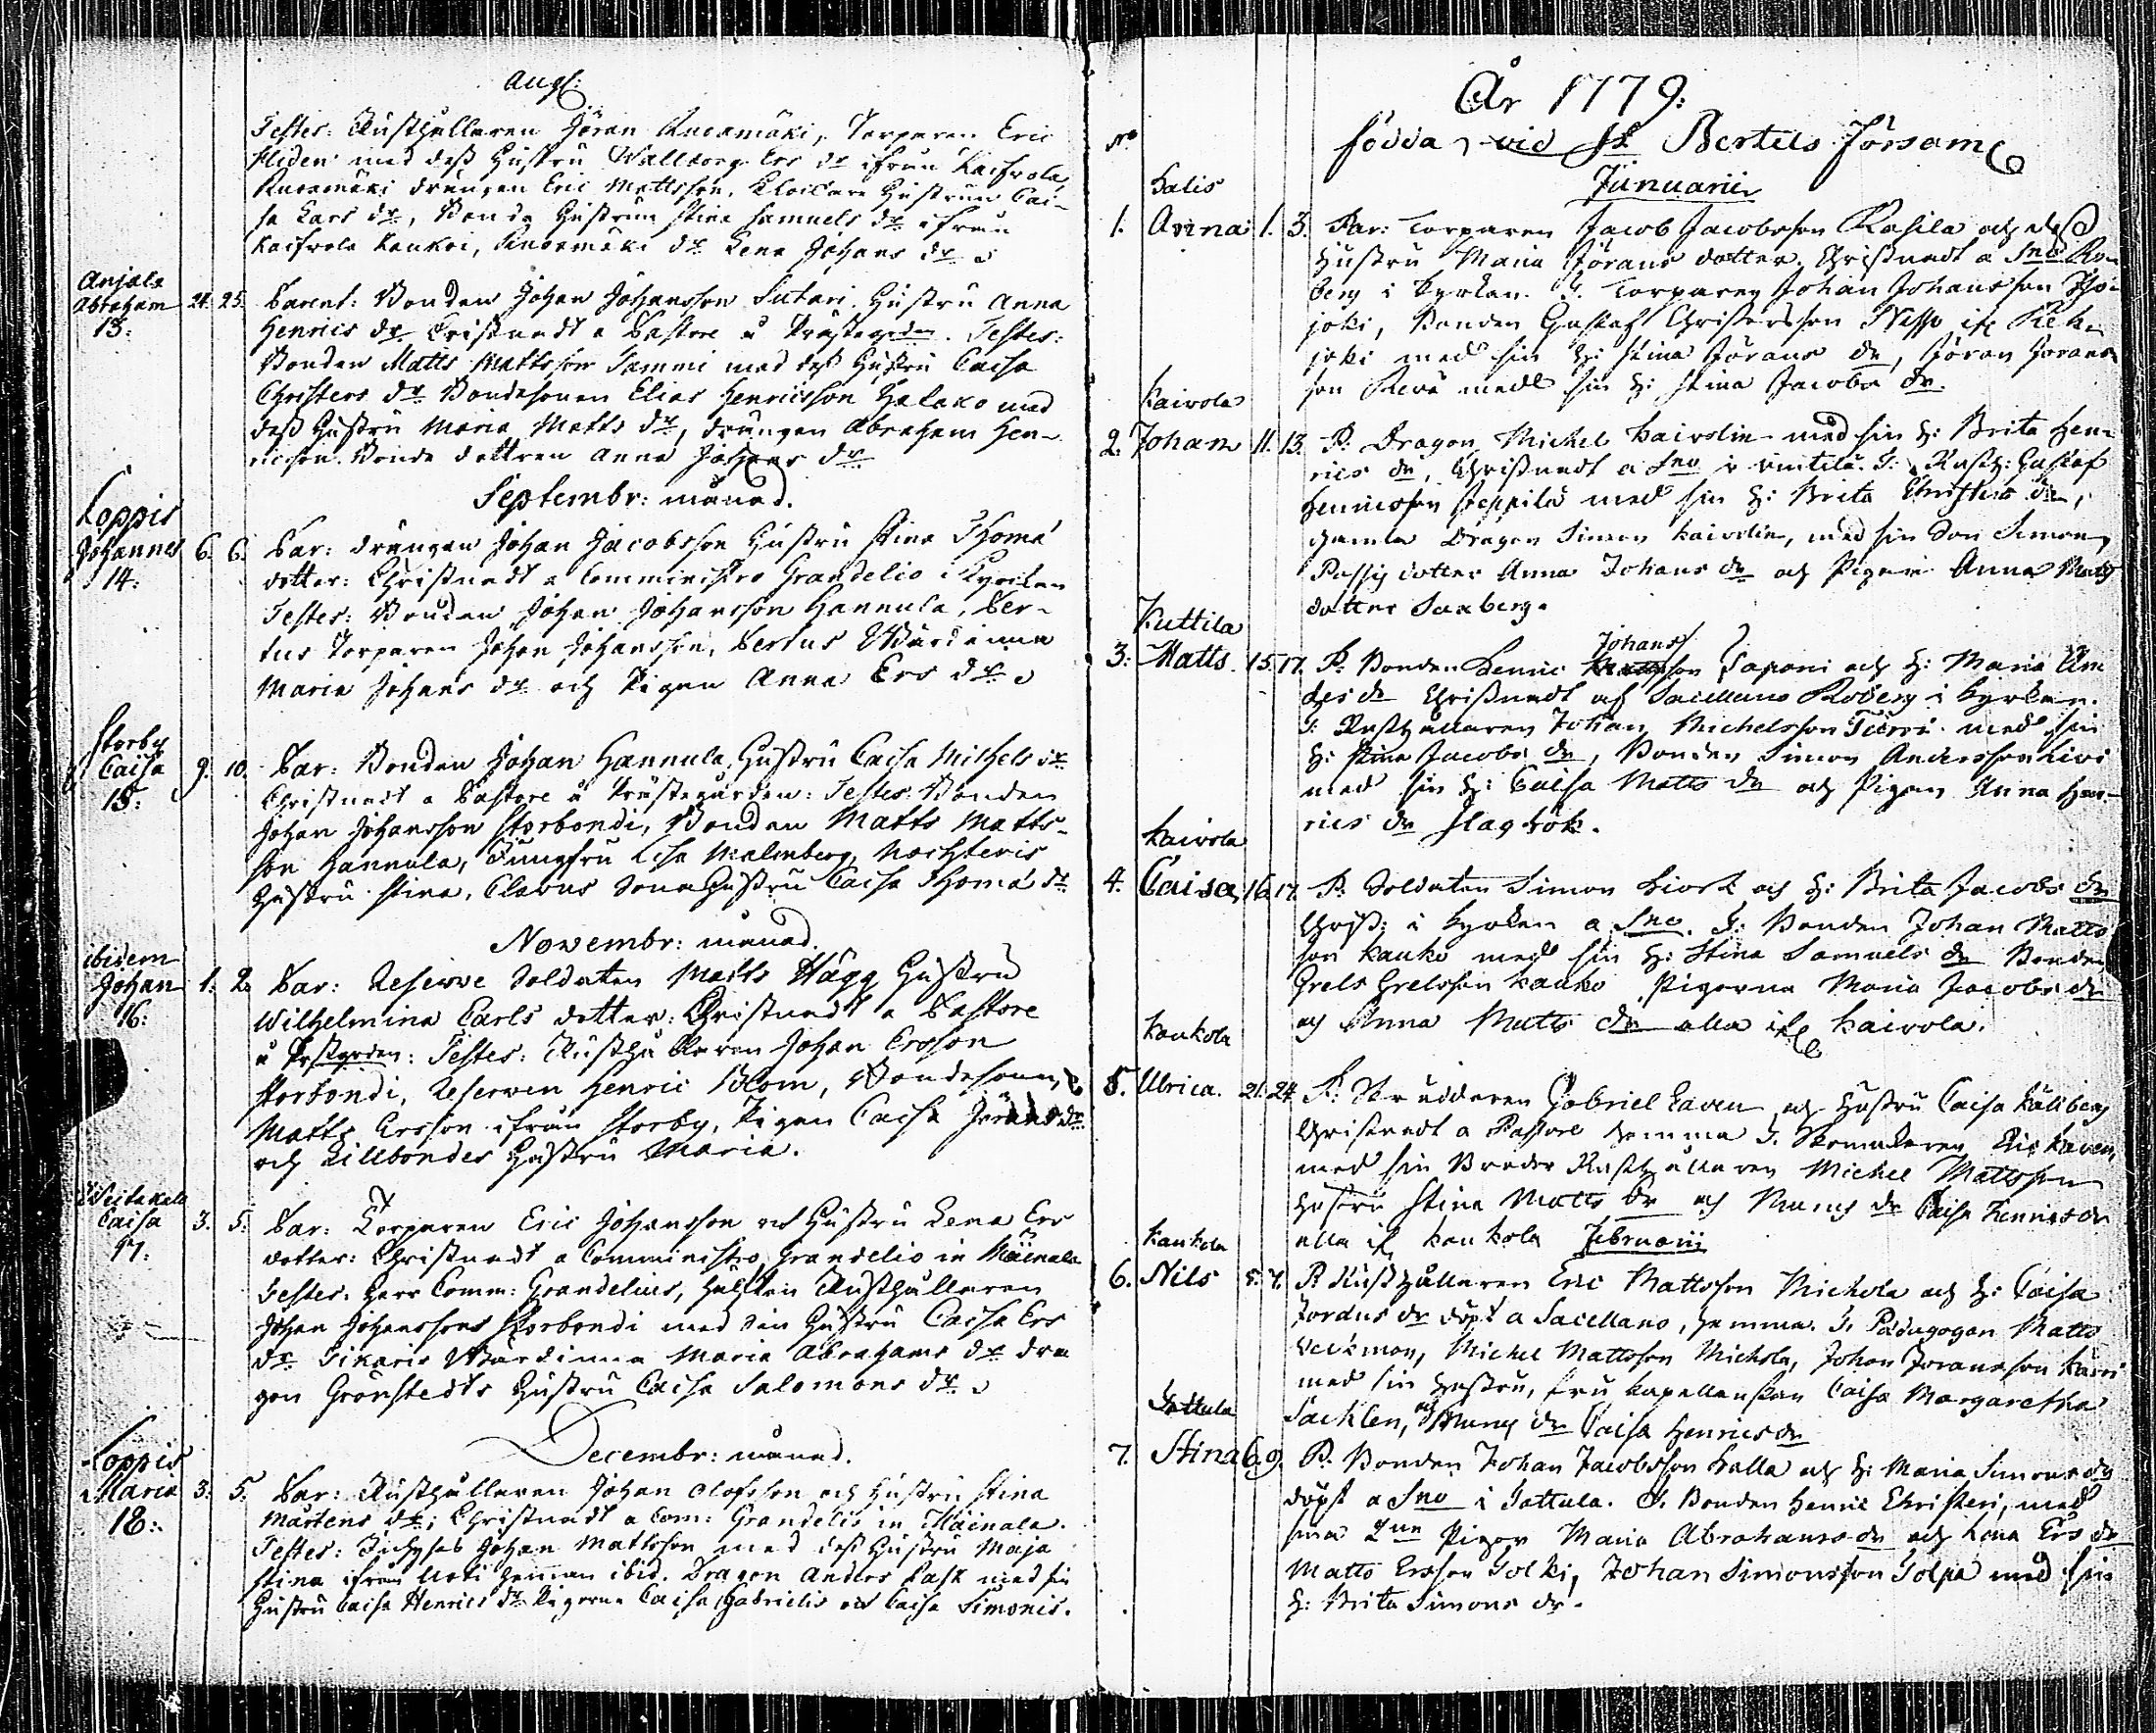 Aug:
Testes: Rusthållaren Jöran Ruoamäki, Torparen Eric
med dess Hustru Wallborg Ers dr ifrån Kaisvola
drängen Eric Mattsson, Klockare Hustrun Cai-
sa Lars dr, Bonde Hustrun Stina Samuels dr ifrån
Kaifvola dr Lena Johans dr
Anjala
Abraham 24. 25. Parent: Bonden Johan Johansson Sutari Hustru Anna
13:
Henrics dr Cristnadt a Pastore å Prästegården. Testes:
Bonden Matts Mattsson Sammi med dess Hustru Caisa
Christers dr Bondesonen Elias Henricsson med
dess Hustru Maria Matts dr, drängen Abraham Hen-
ricson. Bonde dottren Anna Johans dr
Septembr: månad.
Loppis
Johannes 6. 6. Par: drängen Johan Jacobsson Hustru Stina Thomæ
14:
dotter: Christnadt a Comministro Grandelio i Kyrckan
Testes: Bonden Johan Johansson Hannula, Ber-
tus Torparen Johan Johansson, Bertus Wärdinna
Maria Johans dr och Pigan Anna Ers dr
Storby
Caisa 9. 10. Par: Bonden Johan Hannula, Hustru Caisa Michels dr
15:
Christnadt a Pastore å Prästegården: Testes: Bonden
Johan Johansson Storbondi, Bonden Matts Matts-
son Hannula, Jungfru Lisa Malmberg,
Hustru Stina, Clavus Sona Hustru Caisa Thomæ dr
Novembr: månad.
ibidem
Johan 1. 2. Par: Reserve Soldaten Matts Hägg Hustru
16:
Wilhelmina Carls dotter: Christnadt a Pastore
å Prästgården: Testes: Rusthållaren Johan Ersson
Storbondi, Reserven Henric Blom, Bondesonen
Matts Ersson ifrån Storby, Pigan Caisa Jörans dr
och Lillbondes Hustru Maria.
Caisa 3. 5. Par: Torparen Eric Johansson och Hustru Lena Ers
17:
dotter: Christnadt a Comministro Grandelio in Mäenala
Testes: Herr Comm: Grandelius, Rusthållaren
Johan Johanssons Storbondi med sin Hustru Caisa Ers
dr Sikaris Wärdinna Maria Abrahams dr dra
gon Grönstedts Hustru Caisa Salomons dr
Decembr: månad.
Loppis
Maria 3. 5. Par: Rusthållaren Johan Olofsson och Hustru Stina
18:
Mårtens dr; Christnadt a Com: Grandelio in Mäenala.
Testes: Johan Mattsson med dess Hustru Maja
Stina ifrån ibid. Dragon Anders Rask med sin
Hustru Caisa Henrics dr Pigorna Caisa Gabrielis och Caisa Simonis.
År 1779:
födda vid St Bertils Församl
No
Januarii
Halis
1. Anna 1. 3. Par: Torparen Jacob Jacobsson Rasila och dess
Hustru Maria Jörans dotter. Christnadt a Sno Ro-
berg i Kyrkan. T. Torparen Johan Johansson
joki, Bonden Gustaf Christersson
joki med sin H: Stina Jörans dr, Jöran Jörans-
son med sin H: Stina Jacobs dr.
Kaivola
2. Johan 11. 13. P. Dragon Michel Kaivolin med sin H: Brita Hen-
rics dr, Christnadt a Sno T: Rusth: Gustaf
Henricsson Seppilä med sin H: Brita Christers dr,
Gamla Dragon Simon Kaivolin, med sin Son Simon,
dotter Anna Johans dr och Pigan Anna Matts
dotter Saxberg.
Kuttila
3: Matts. 15. 17. P. Bonden Henric Johansson Saponi och H: Maria An
ders dr Christnadt af Sacellano Roberg i Kyrkan.
T: Rusthållaren Johan Michelsson Turri med sin
H: Stina Jacobs dr, Bonden Simon Andersson Kivi
med sin H: Caisa Matts dr och Pigan Anna Hen-
rics dr Slaghök.
Kaivola
4. Caisa, 16. 17. P. Soldaten Simon Biork och H: Brita Jacobs dr
Christ: i Kyrkan a Sno. T: Bonden Johan Matts
son Kauko med sin H: Stina Samuels dr Bonden
Grels Grelsson Kauko, Pigorna Maria Jacobs dr
och Anna Matts dr alla ifr Kaivola.
Kaukola
5. Ulrica. 21. 24. P: Skräddaren Gabriel Caven och Hustru Caisa Kållberg
Christnadt a Pastore hemma T. Skomakaren Eric Kaven,
med sin Broder Rusthållaren Michel Mattsson
Hustru Stina Matts dr och dr Caisa Henrics dr
alla if Kaukola Februarii
Kaukola
6. Nils 5. 7. P. Rusthållaren Eric Mattsson Michola och H: Caisa
Jordans dr döpt a Sacellano, hemma. T. Pädagogon Matts
Weckman, Michel Mattsson Michola, Johan Joransson Karri
med sin Hustru, fru Kapellanskan Caisa Margaretha
Sacklen, och dr Caisa Henrics dr
Tattula
7. Stina 6. 9. P. Bonden Johan Jacobsson Halla och H: Maria Simons dr
döpt a Sno i Tattula. T. Bonden Henric Christeri, med
sina 2ne Pigor Maria Abrahams dr och Lena Ers dr
Matts Ersson Solki, Johan Simonsson Solpa med sin
H: Brita Simons dr.